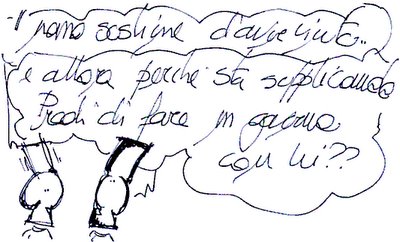 -il nano sostiene d'aver vinto..
e allora perchè sta supplicando
Prodi di fare un governo
con lui??